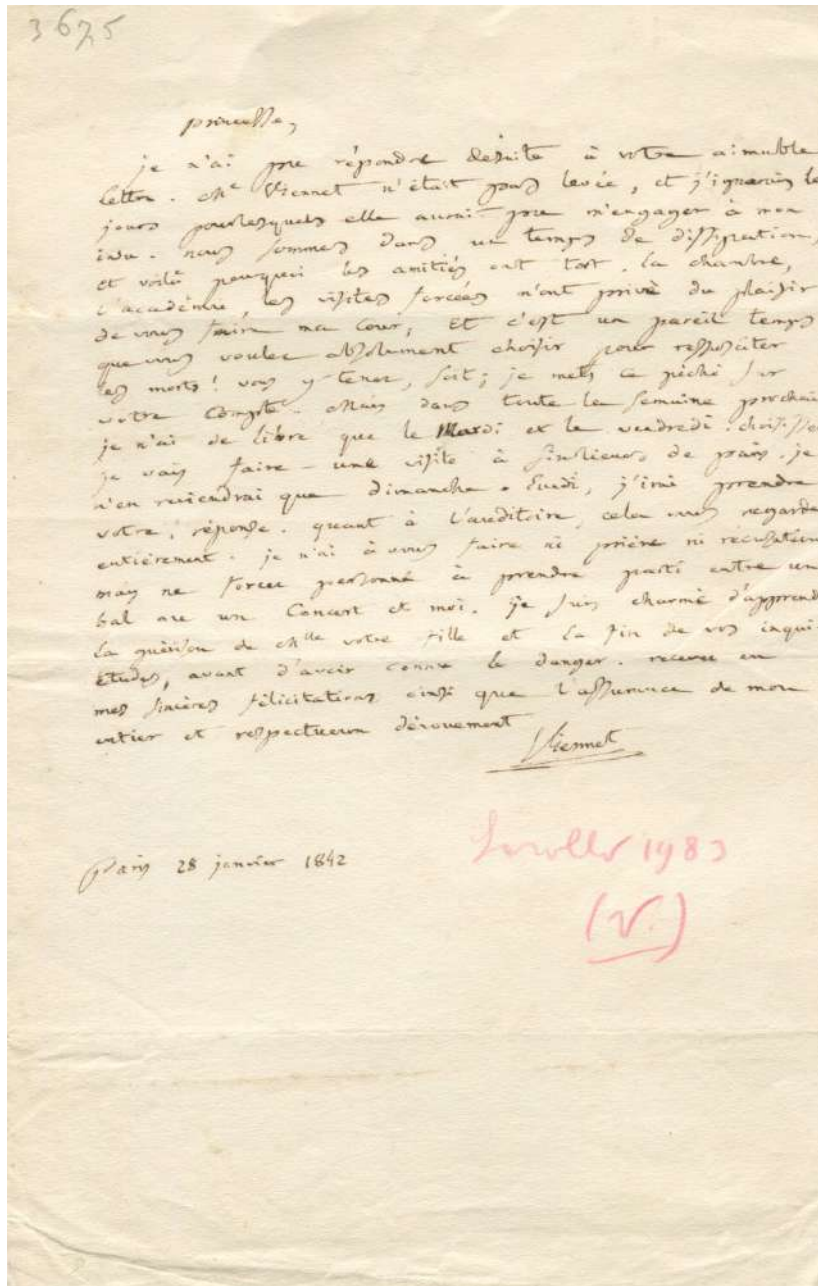 3675
princesse,
je n'ai pu répondre desuite à votre aimable
lettre. Me Viennet n'était pas levée, et j'ignorais les
jours pour lesquels elle aurait pu m'engager à mon
insu. nous sommes dans un temps de dissipation,
et voilà pourquoi les amitiés ont tort. la chambre,
l'académie, les visites forcées m'ont privé du plaisir
de vous faire ma cour; Et c'est un pareil temps
que vous voulez absolument choisir pour ressusciter
les morts! vous y tenez, soit; je mets ce péché sur
votre compte. Mais dans toute la semaine prochaine
je n'ai de libre que le Mardi et le vendredi. choisissez
je vais faire une visite à lieues de paris. je
n'en reviendrai que dimanche. Lundi, j'irai prendre
votre réponse. quant à l'auditoire, cela vous regarde
entièrement. je n'ai à vous faire ni prière ni récusation
mais ne forcez personne à prendre parti entre un
bal ou un Concert et moi. je suis charmé d'apprendre
la guérison de Mlle votre fille et la fin de vos inqui
études, avant d'avoir connu le danger. recevez en
mes sincères félicitations ainsi que l'assurance de mon
entier et respectueux dévouement
Viennet
Paris 28 janvier 1842
1983
(V.)